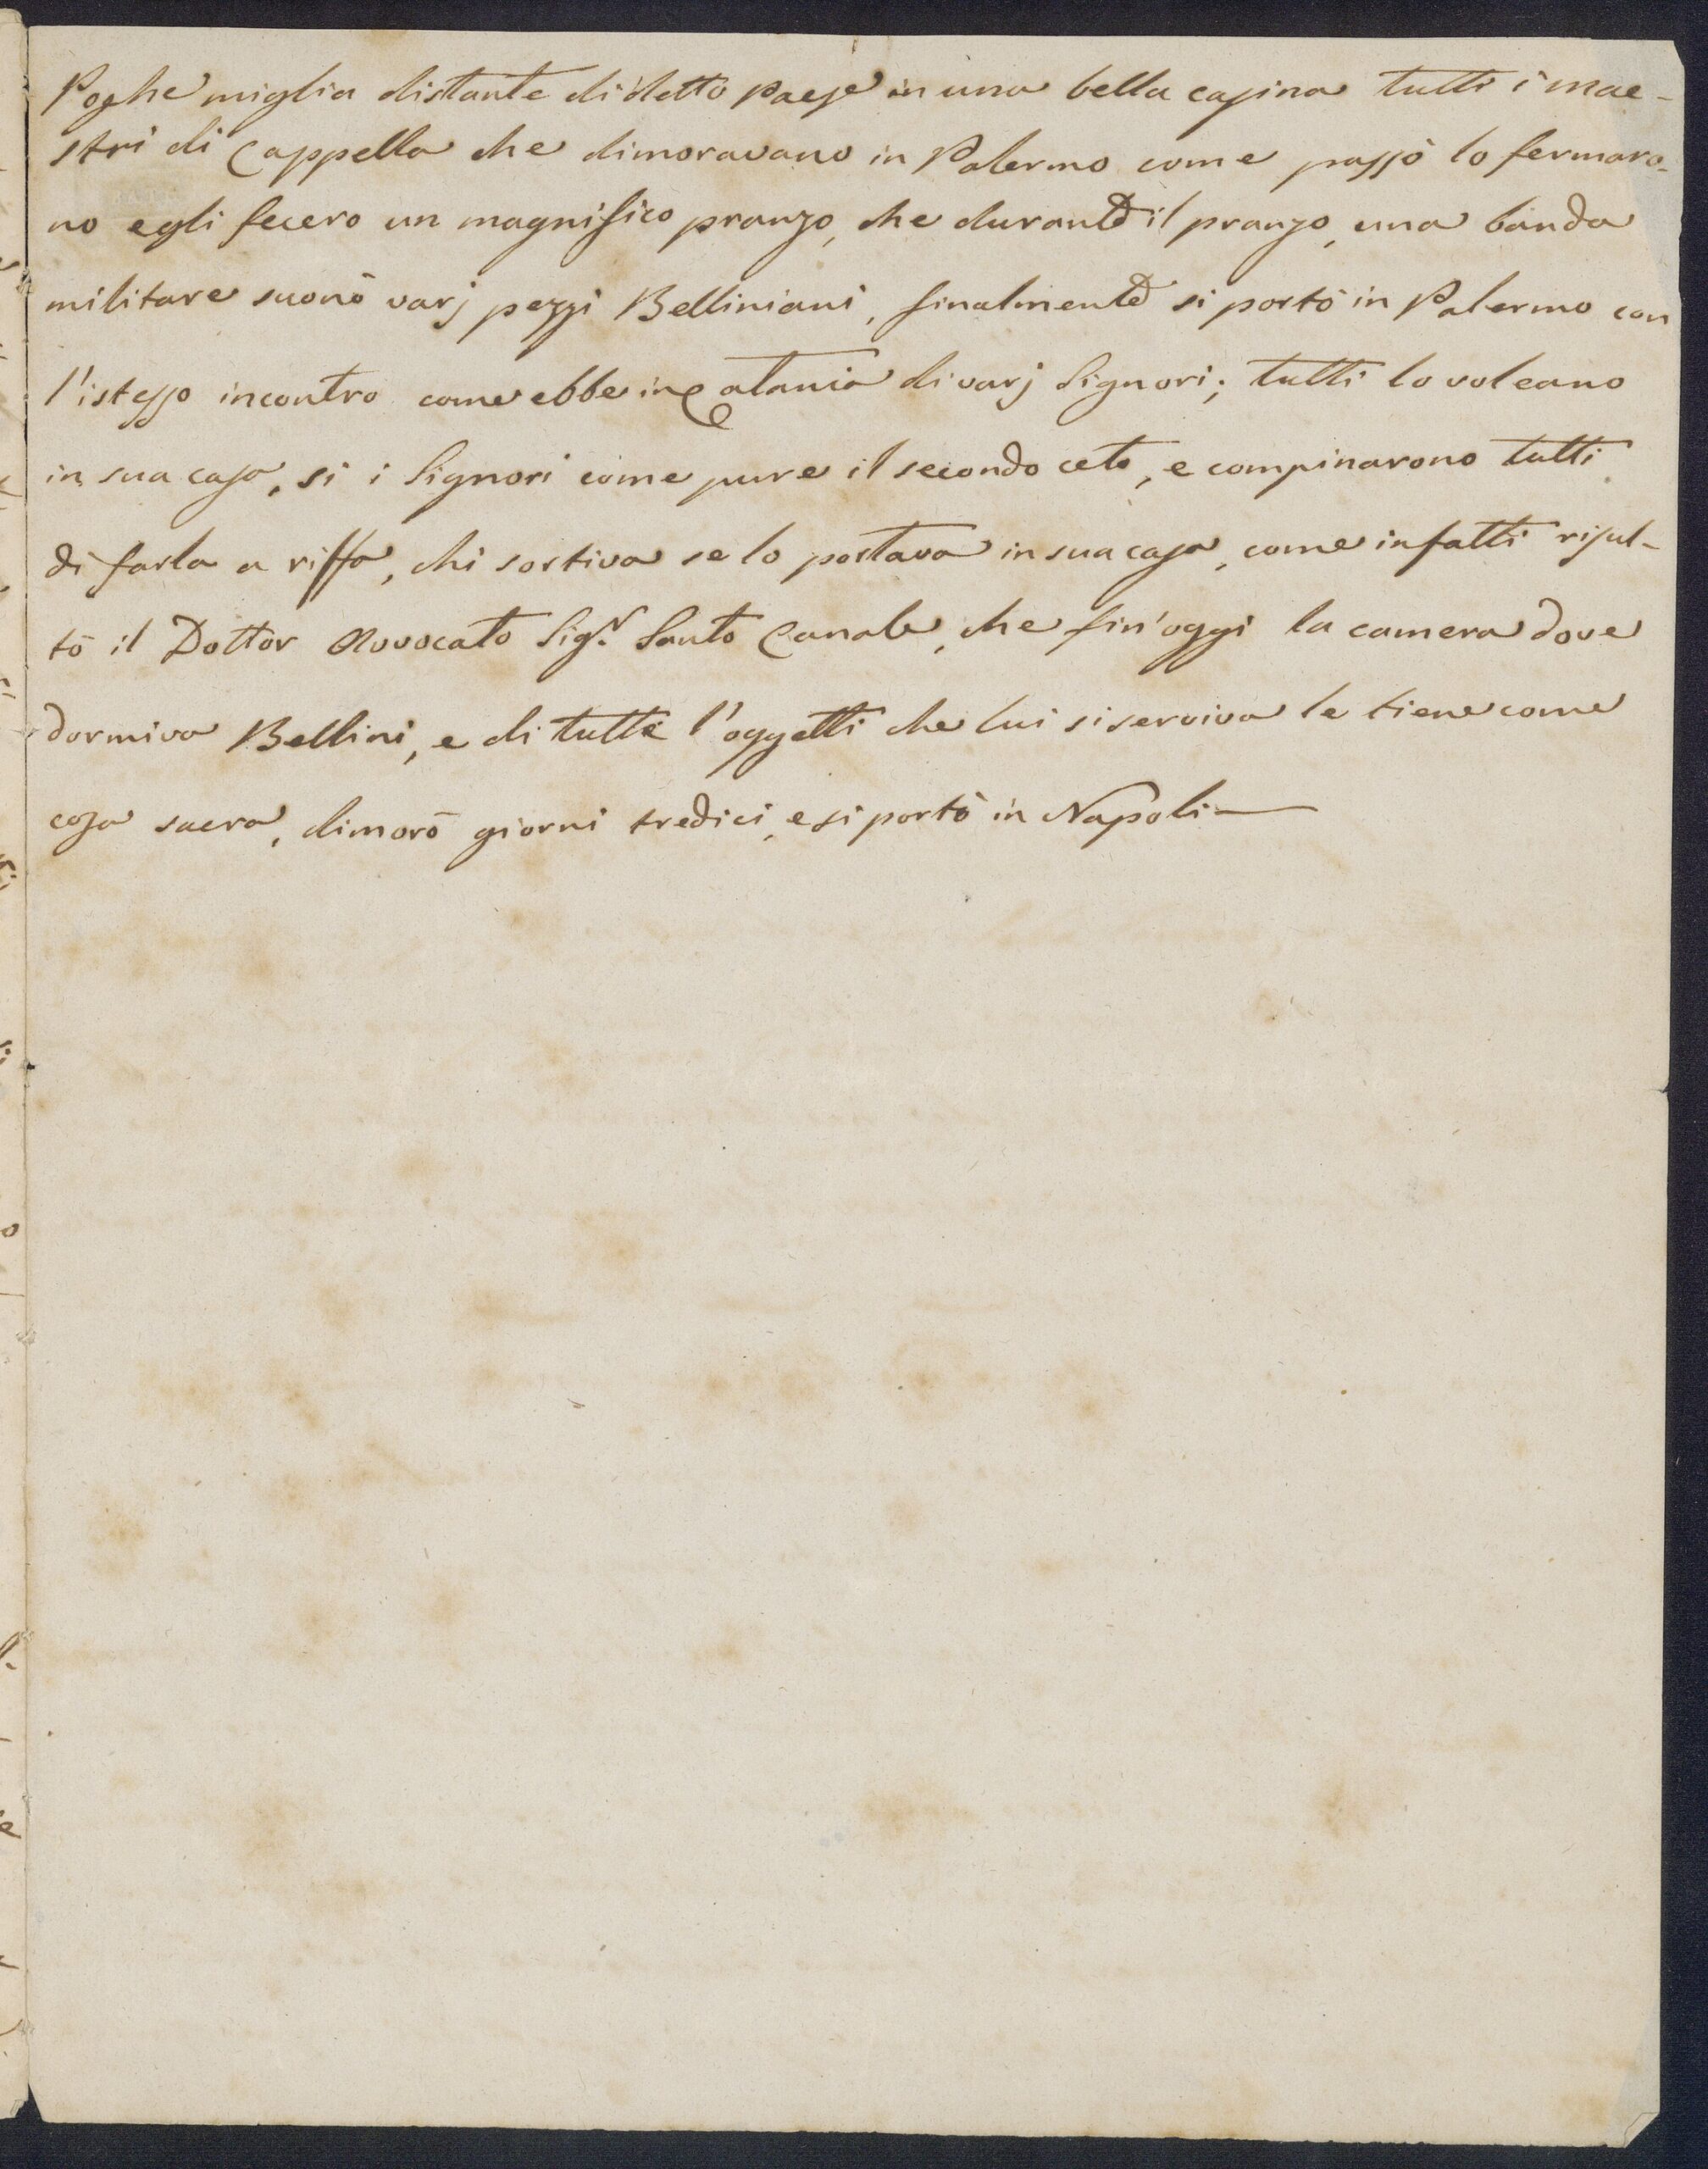 Poghe miglia distante di detto paese in una bella casina tutti i mae-
stri di Cappella che dimoravano in Palermo come passò lo fermaro-
no egli fecero un magnifico pranzo, che durante il pranzo, una banda
militare suonò varj pezzi Belliniani, finalmente si portò in Palermo con
l'istesso incontro come ebbe in Catania di varj Signori; tutti lo voleano
in sua casa, si i Signori come pure il secondo ceto, e compinarono tutti
di farla a riffa, chi sortiva se lo portava in sua casa, come infatti risul-
tò il Dottor Avvocato Sig.r Santo Canale, che fin'oggi la camera dove
dormiva Bellini, e di tutte l'oggetti che lui si serviva le tiene come
cosa sacra, dimorò giorni tredici, e si portò in Napoli —